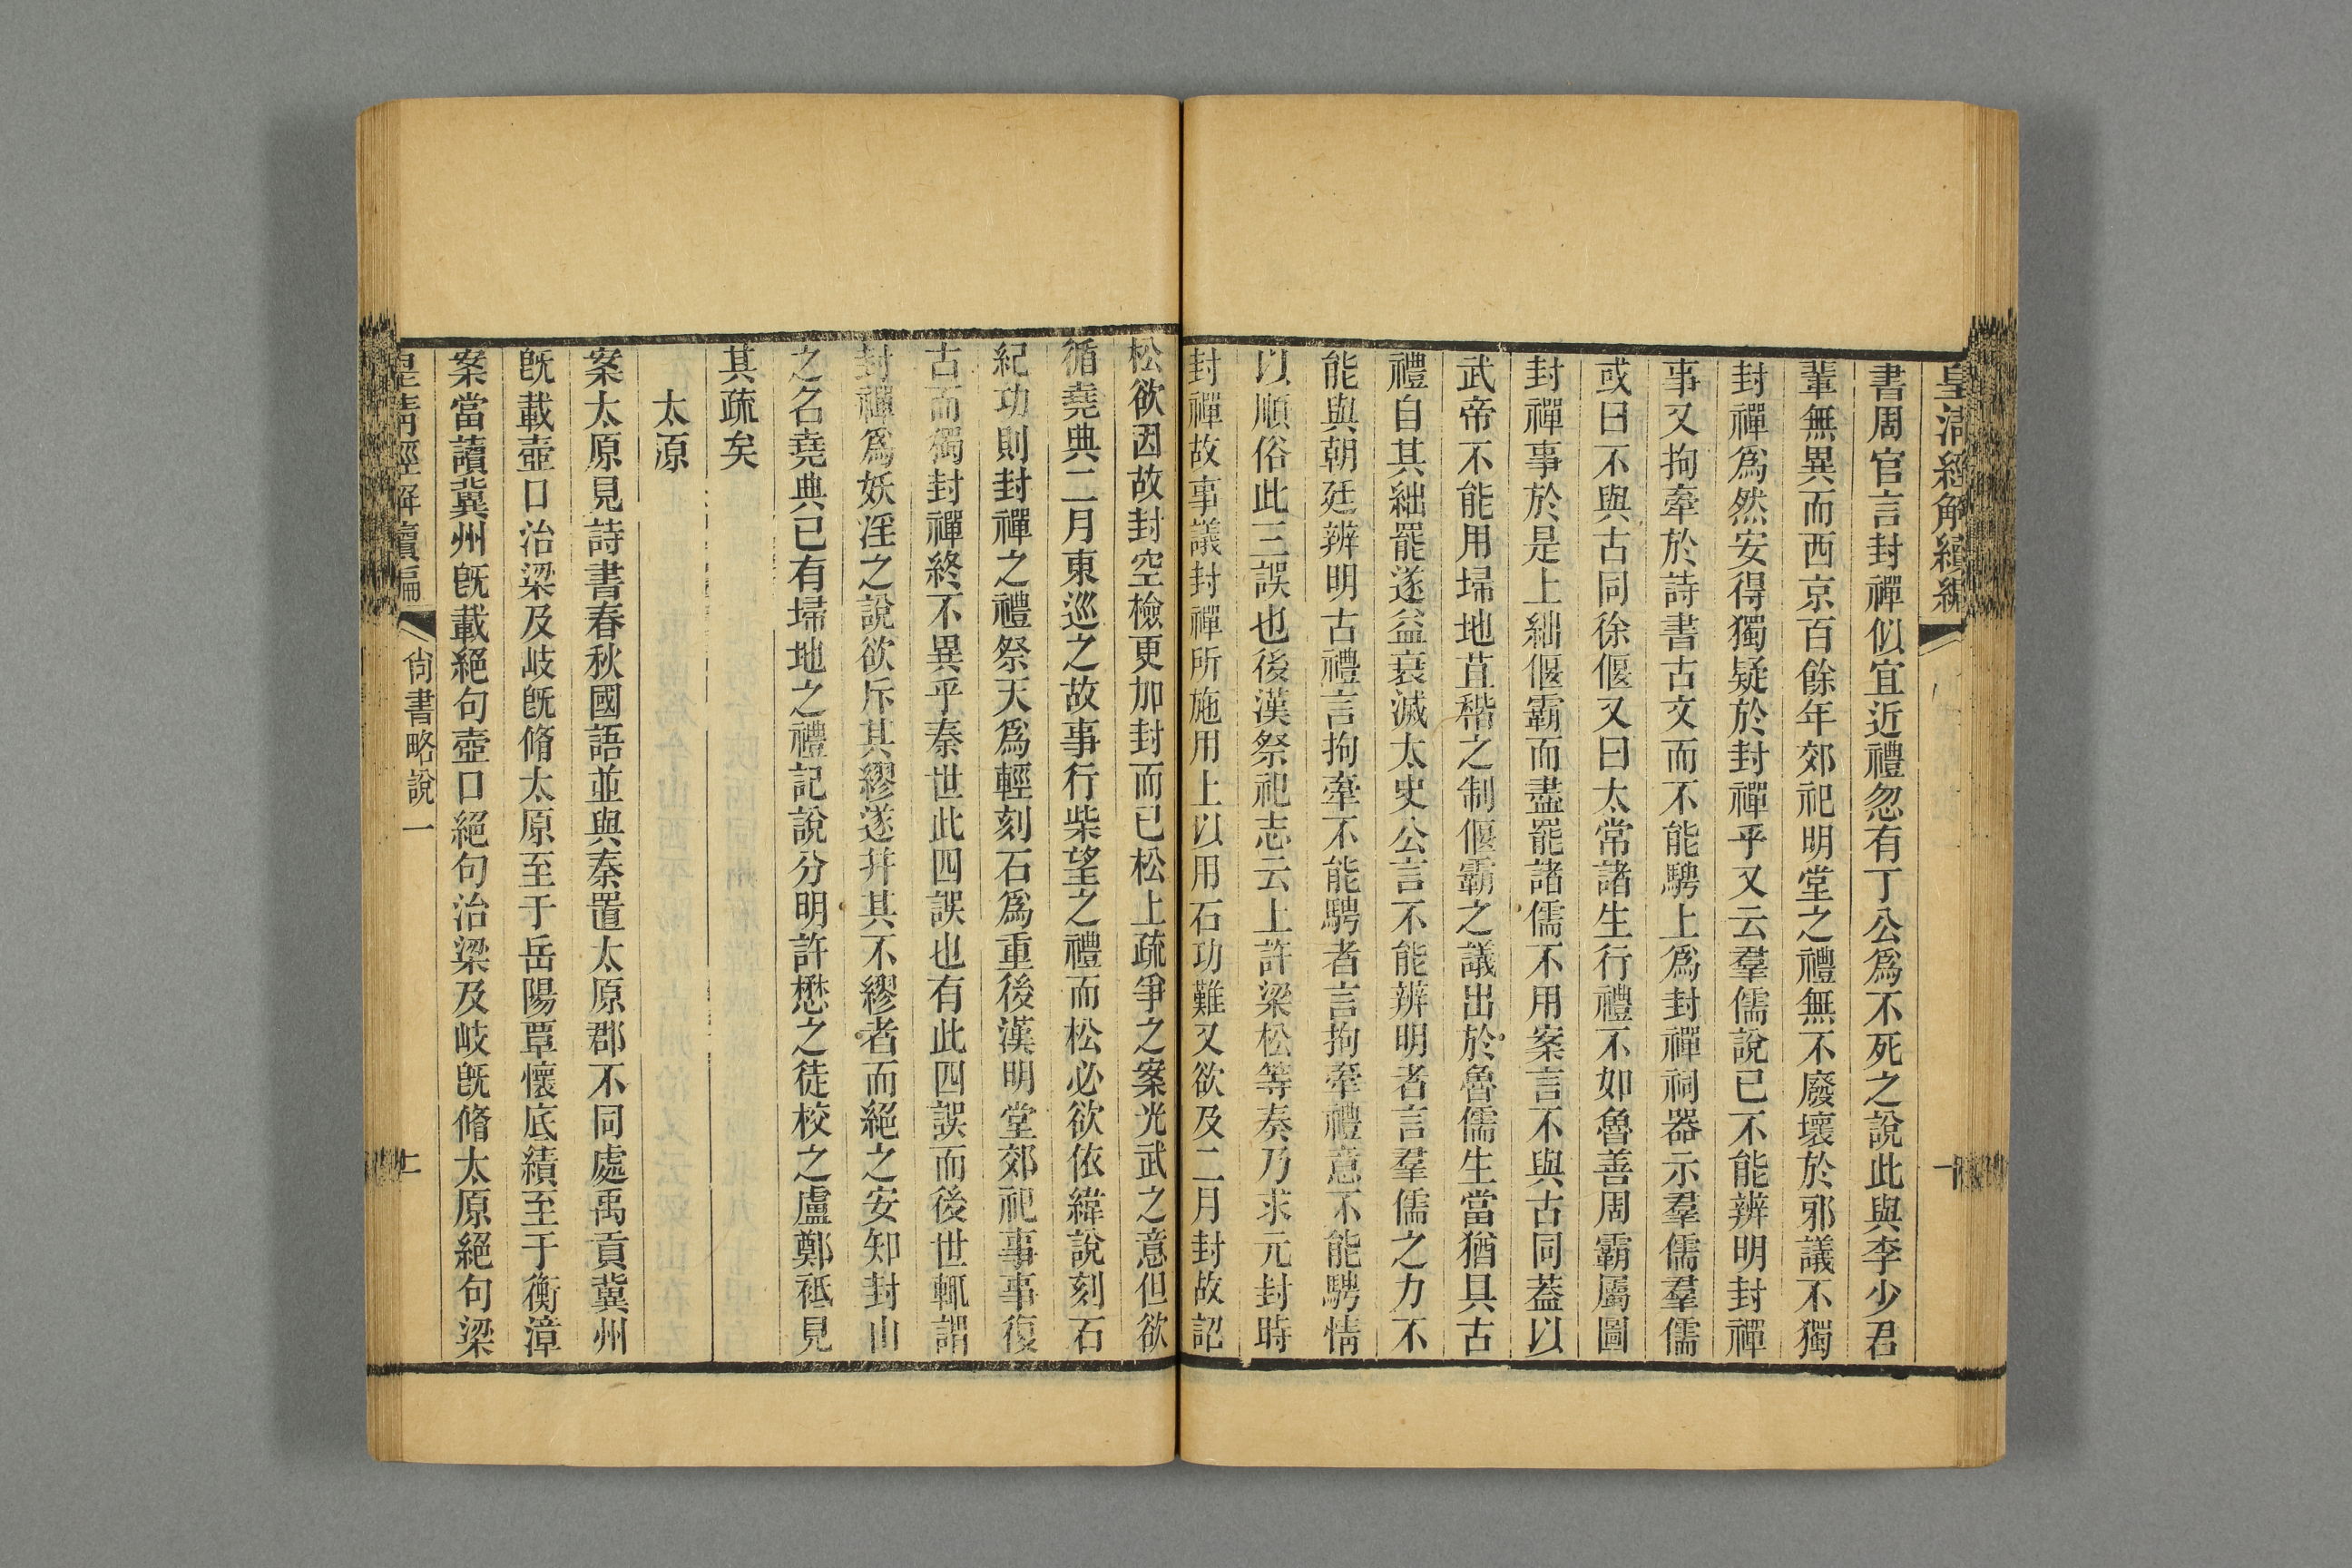 皇清經解續編
書周官言封禪似宜近禮忽有丁公爲不死之說此與李少君
輩無異而西京百餘年郊祀明堂之禮無不廢壞於邪議不獨
封禪爲然安得獨疑於封禪乎又云羣儒說已不能辨明封禪
事又拘牽於詩書古文而不能騁上爲封禪祠器示羣儒羣儒
或曰不與古同徐偃又曰太常諸生行禮不如魯善周霸屬圖
封禪事於是上絀偃霸而盡罷諸儒不用案言不與古同蓋以
武帝不能用埽地苴稭之制偃霸之議出於魯儒生當猶具古
禮自其絀罷遂益衰滅太史公言不能辨明者言羣儒之力不
能與朝廷辨明古禮言拘牽不能騁者言拘牽禮意不能騁情
以順俗此三誤也後漢祭祀志云上許梁松等奏乃求元封時
封禪故事議封禪所施用上以用石功難又欲及二月封故詔
松欲因故封空檢更加封而已松上疏爭之案光武之意但欲
循堯典二月東巡之故事行柴望之禮而松必欲依緯說刻石
紀功則封禪之禮祭天爲輕刻石爲重後漢明堂郊祀事事復
古而獨封禪終不異乎秦世此四誤也有此四誤而後世輒謂
封禪爲妖淫之說欲斥其繆遂并其不繆者而絕之安知封山
之名堯典已有埽地之禮記說分明許懋之徒校之盧鄭祗見
其疏矣
太原
案太原見詩書春秋國語並與秦置太原郡不同處禹貢冀州
旣載壺口治梁及岐旣脩太原至于岳陽覃懷底績至于衡漳
案當讀冀州旣載絕句壺口絕句治梁及岐旣脩太原絕句梁
皇清經解續編
尙書略說一